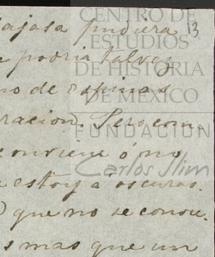 13
CENTRO DE
ESTUDIOS
DE HISTORIA
DE MÉXICO
FUNDACIÓN
Carlos Slim
pudiera
podria talvez
de espinas
racion. Pero com
conviene ó no
estoy a oscuras.
que no se conoce
mas que un